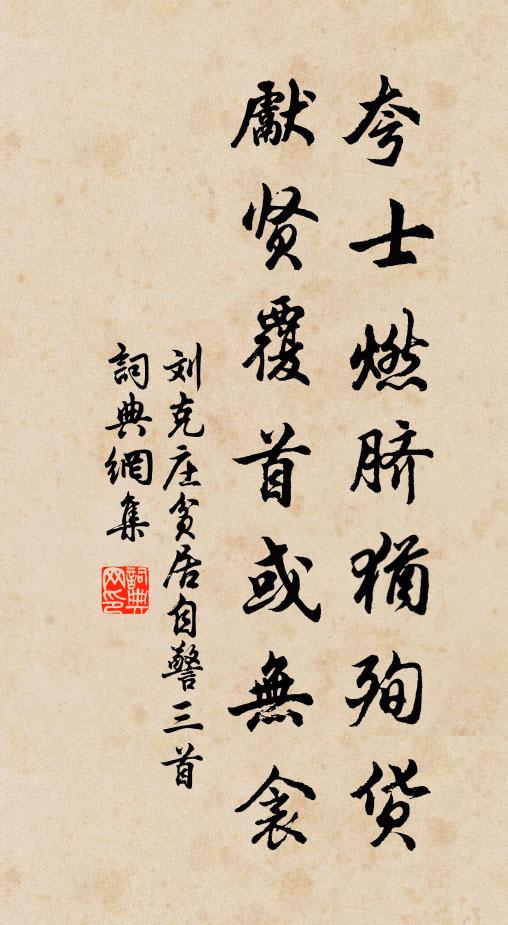 夸士燃脐猶殉货
獻贤覆首或無衾
刘克庄贫居自警三首
詞典網集
詞典网印